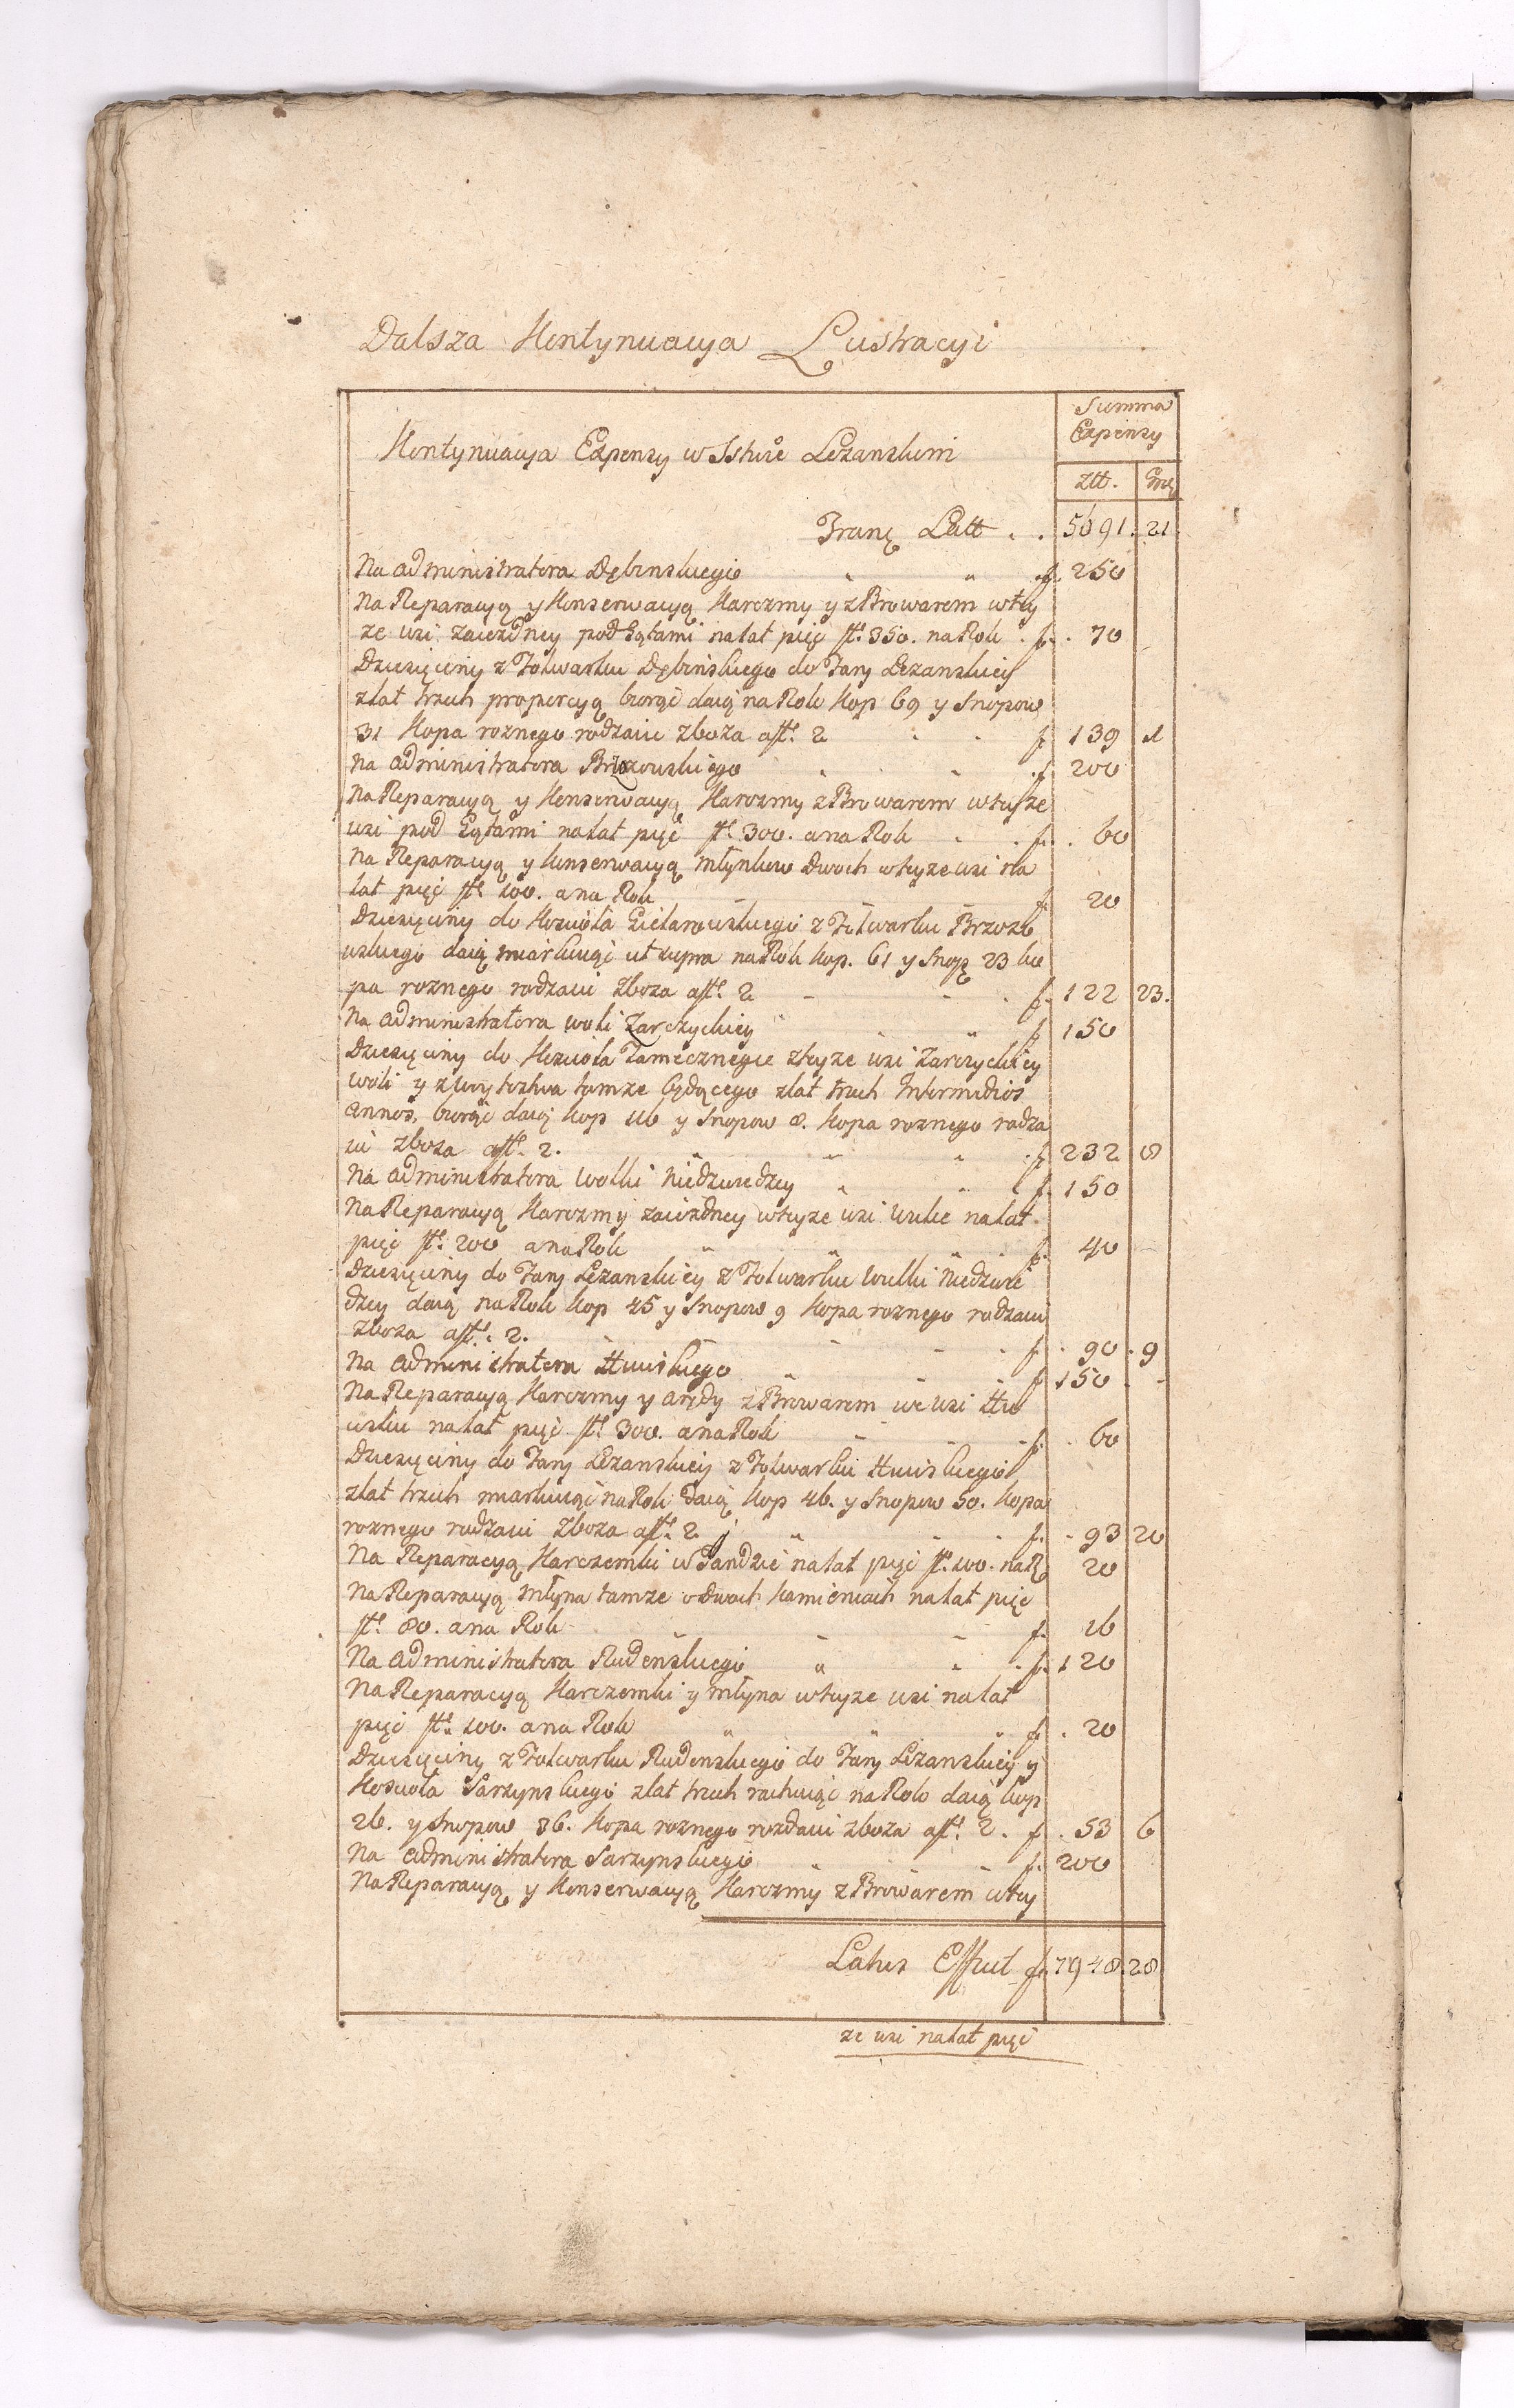 Dalsza Kontynuacya Lustracyi
Summa
Expensy
Kontynuacya Expensy w Sstwie Leżanskim
Złł. Gro.
Tranę Latt . . 5691. 21.
Na administratora Dębinskiego f. 250
Na Reparacyą y Konserwacyą Karczmy y z Browarem w tey
że wsi zaiezdney pod Gątami na lat pięć ft. 350. na Rok . f. . 70
Dziesięciny z Folwarku Dębinskiego do Fary Leżanskiey
z lat trzech proporcyą biorąc daią na Rok Kop 69 y Snopow
31 Kopa roznego rodzaiu zboza a ft. 2 f. 139 1
Na administratora Brzozowskiego f. 200
Na Reparacyą y Konserwacyą Karczmy z Browarem w teyże
wsi pod Gątami na lat pięć ft. 300. a na Rok . f. . 60
Na Reparacyą y konserwacyą Młynkow dwoch w teyze wsi na
lat pięć ft. 100. a na Rok f. 20
Dziesięciny do Koscioła Giedlarowskiego z Folwarku Brzozo
wskiego daią miarkuiąc ut supra na Rok kop. 61 y Snop. 23 ko
pa roznego rodzaiu zboza a ft. 2 f. 122 23.
Na administratora woli Zarczyckiey f. 150
Dziesięciny do Koscioła Tamecznego z teyze wsi Zarczyckiey
woli y z Woytostwa tamze będącego z lat trzech Intermedios
annos, biorąc daią kop 116 y Snopow 8. kopa roznego rodza
iu zboza a ft. 2. f. 232 8
Na administratora Wolki Niedzwiedzey f. 150
Na Reparacyą Karczmy zaiezdney w teyze wsi Wulce na lat
pięć ft. 200 a na Rok f. 40
Dziesięciny do Fary Leżanskiey z Folwarku Wulki Niedzwie
dzey daią na Rok kop 45 y Snopow 9 kopa roznego rodzaiu
zboza a ft. 2. f. . 90 . 9
Na administratora Huciskiego f. 150
Na Reparacyą Karczmy y arędy z Browarem we wsi Hu
cisku na lat pięć ft. 300. a na Rok f. . 60
Dziesięciny do Fary Leżanskiey z Folwarku Huciskiego
z lat trzech miarkuiąc na Rok daią kop 46. y Snopow 50. kopa
roznego rodzaiu zboza a ft. 2 f. . 93 20
Na Reparacyą Karczemki w Jandzie na lat pięć ft. 100. na R. 20
Na Reparacyą Młyna tamze o dwoch kamieniach na lat pięć
ft. 80. a na Rok f. 16
Na administratora Rudenskiego f. 120
Na Reparacyą Karczemki y Młyna w teyze wsi na lat
pięć ft. 100. a na Rok f. . 20
Dziesięciny z Folwarku Rudenskiego do Fary Leżanskiey y
Kosciola Sarzynskiego z lat trzech rachuiąc na Rok daią kop
26. y Snopow 36. kopa roznego rozdaiu zboza a ft. 2. f. . 53 6
Na administratora Sarzynskiego f. 200
Na Reparacyą y Konserwacyą Karczmy z Browarem w tey
Latus Efficit f. 7948. 28
że wsi na lat pięć